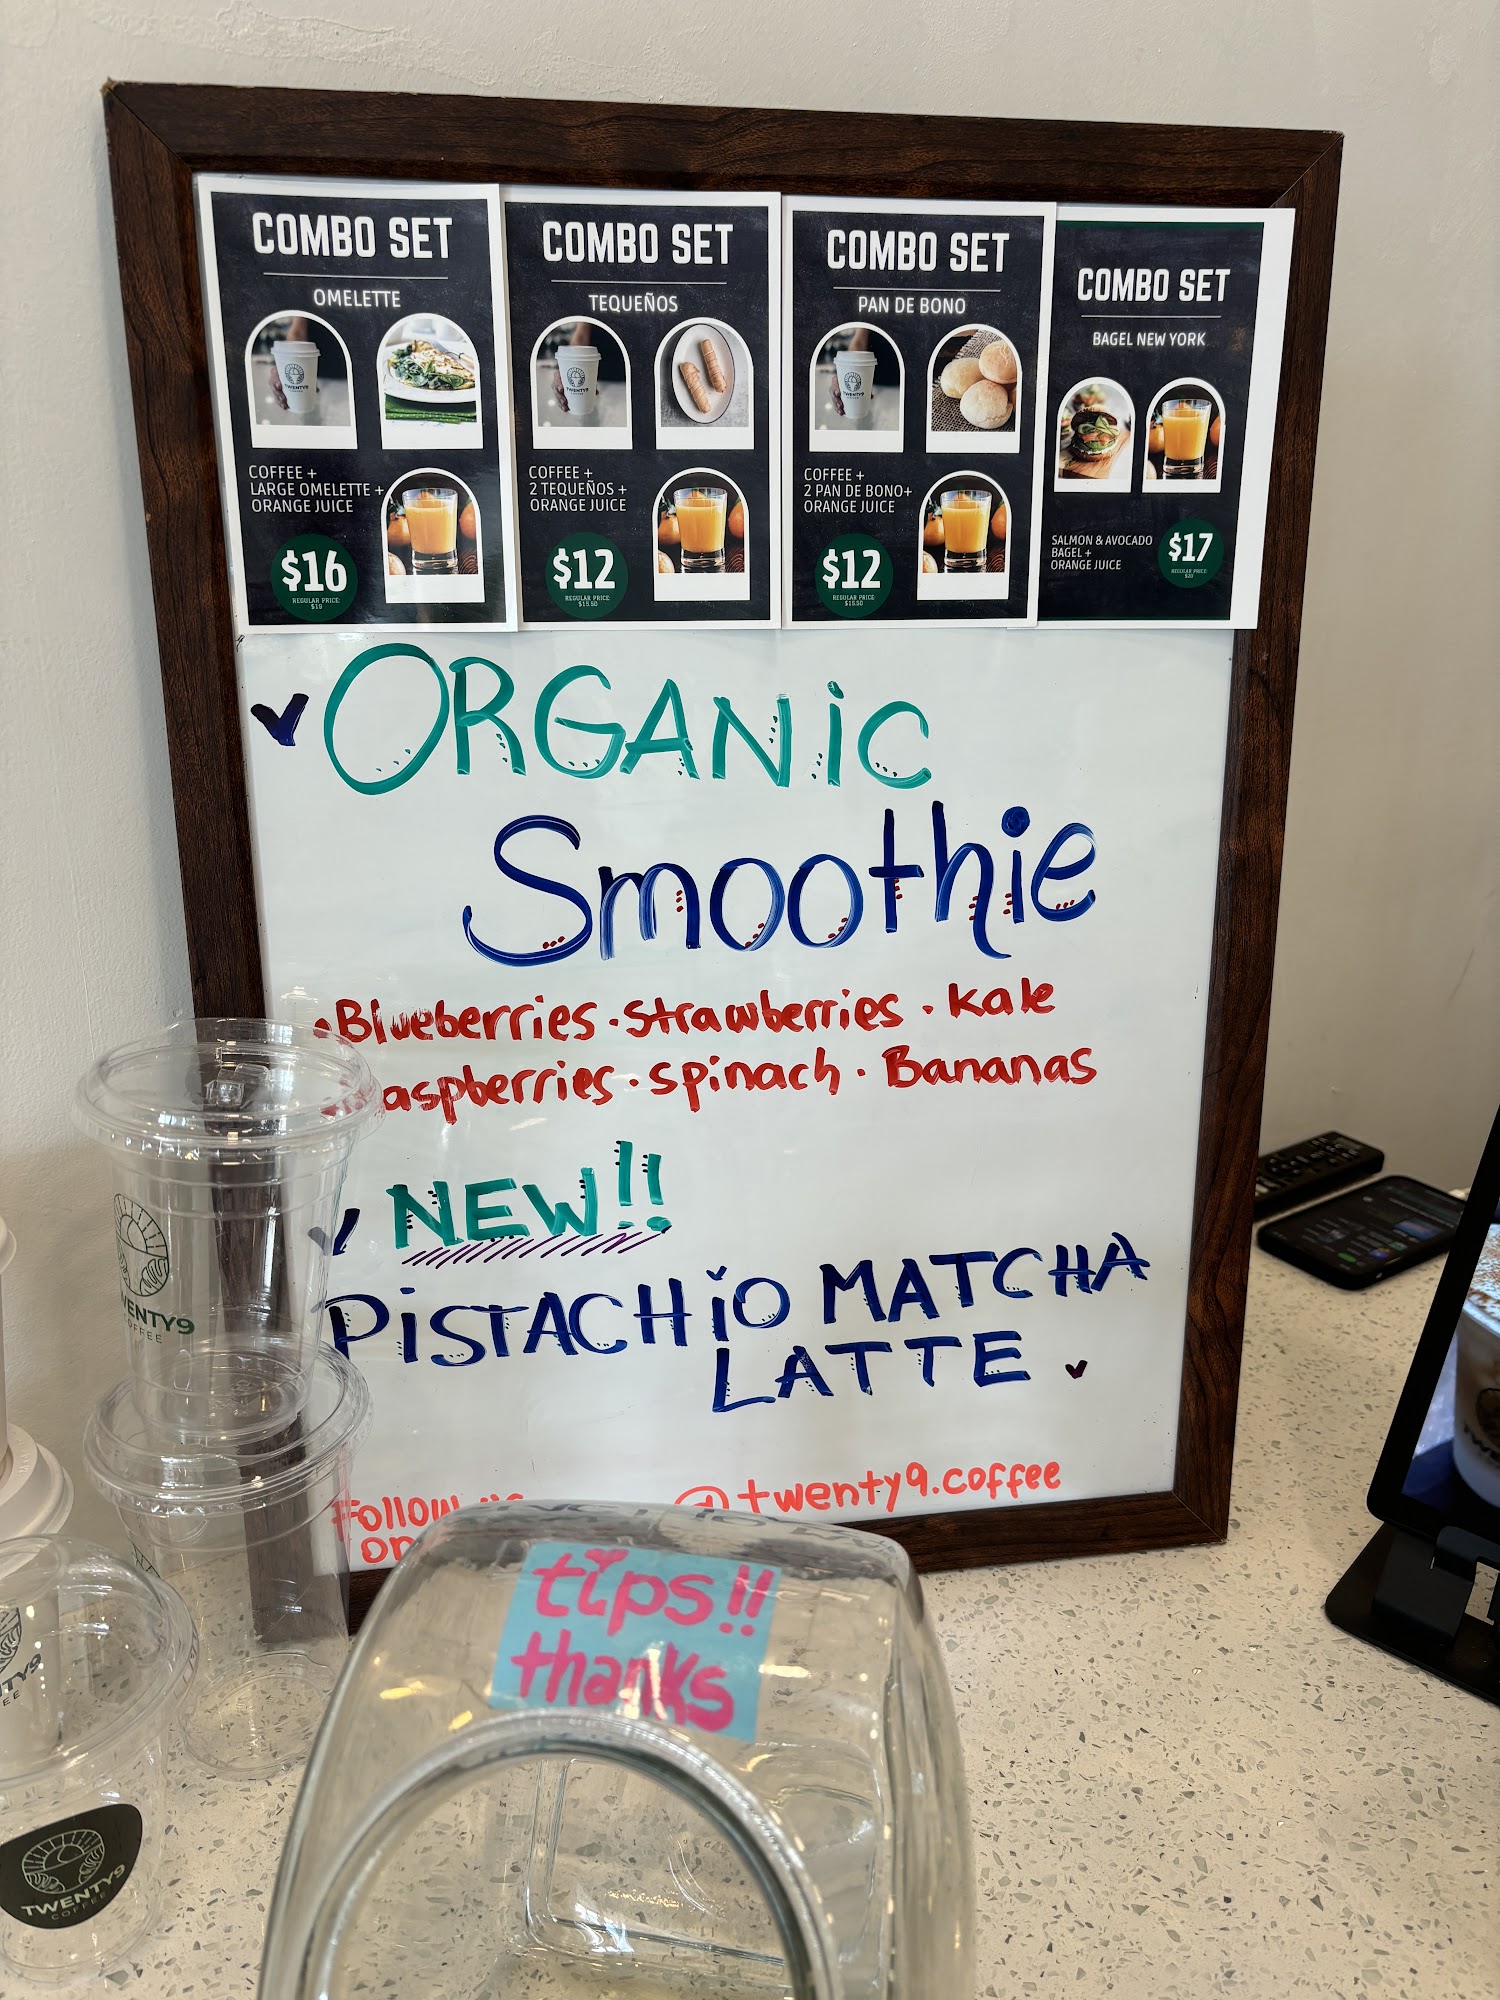 COMBO SET
OMELETTE
COFFEE +
LARGE OMELETTE +
ORANGE JUICE
$16
REGULAR PRICE:
$19
COMBO SET
TEQUEÑOS
COFFEE +
2 TEQUEÑOS +
ORANGE JUICE
$12
REGULAR PRICE:
$15.50
COMBO SET
PAN DE BONO
COFFEE +
2 PAN DE BONO+
ORANGE JUICE
$12
REGULAR PRICE:
$15.50
COMBO SET
BAGEL NEW YORK
SALMON & AVOCADO
BAGEL +
ORANGE JUICE
$17
REGULAR PRICE:
$20
ORGANiC
Smoothie
•Blueberries • strawberries • kale
aspberries • spinach • Bananas
NEW!!
PiSTACHiO MATCHA
LATTE
Follow us
on
@twenty9.coffee
tips!!
thanks
WENTY9
COFFEE
TWENTY9
COFFEE